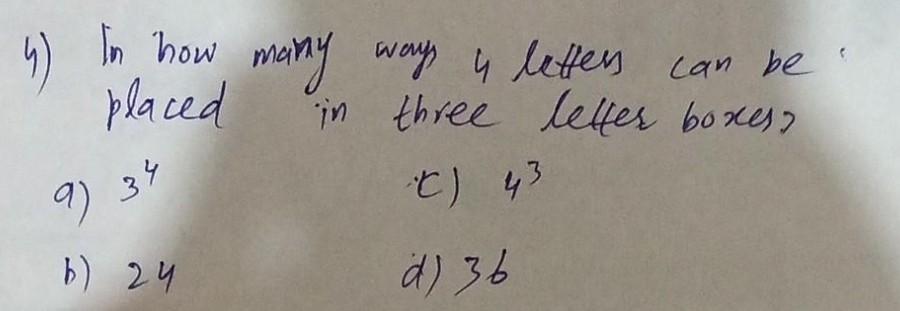 4) In how many ways 4 letters can be
placed in three letter boxes?
a) 3⁴ c) 4³
b) 24 d) 36